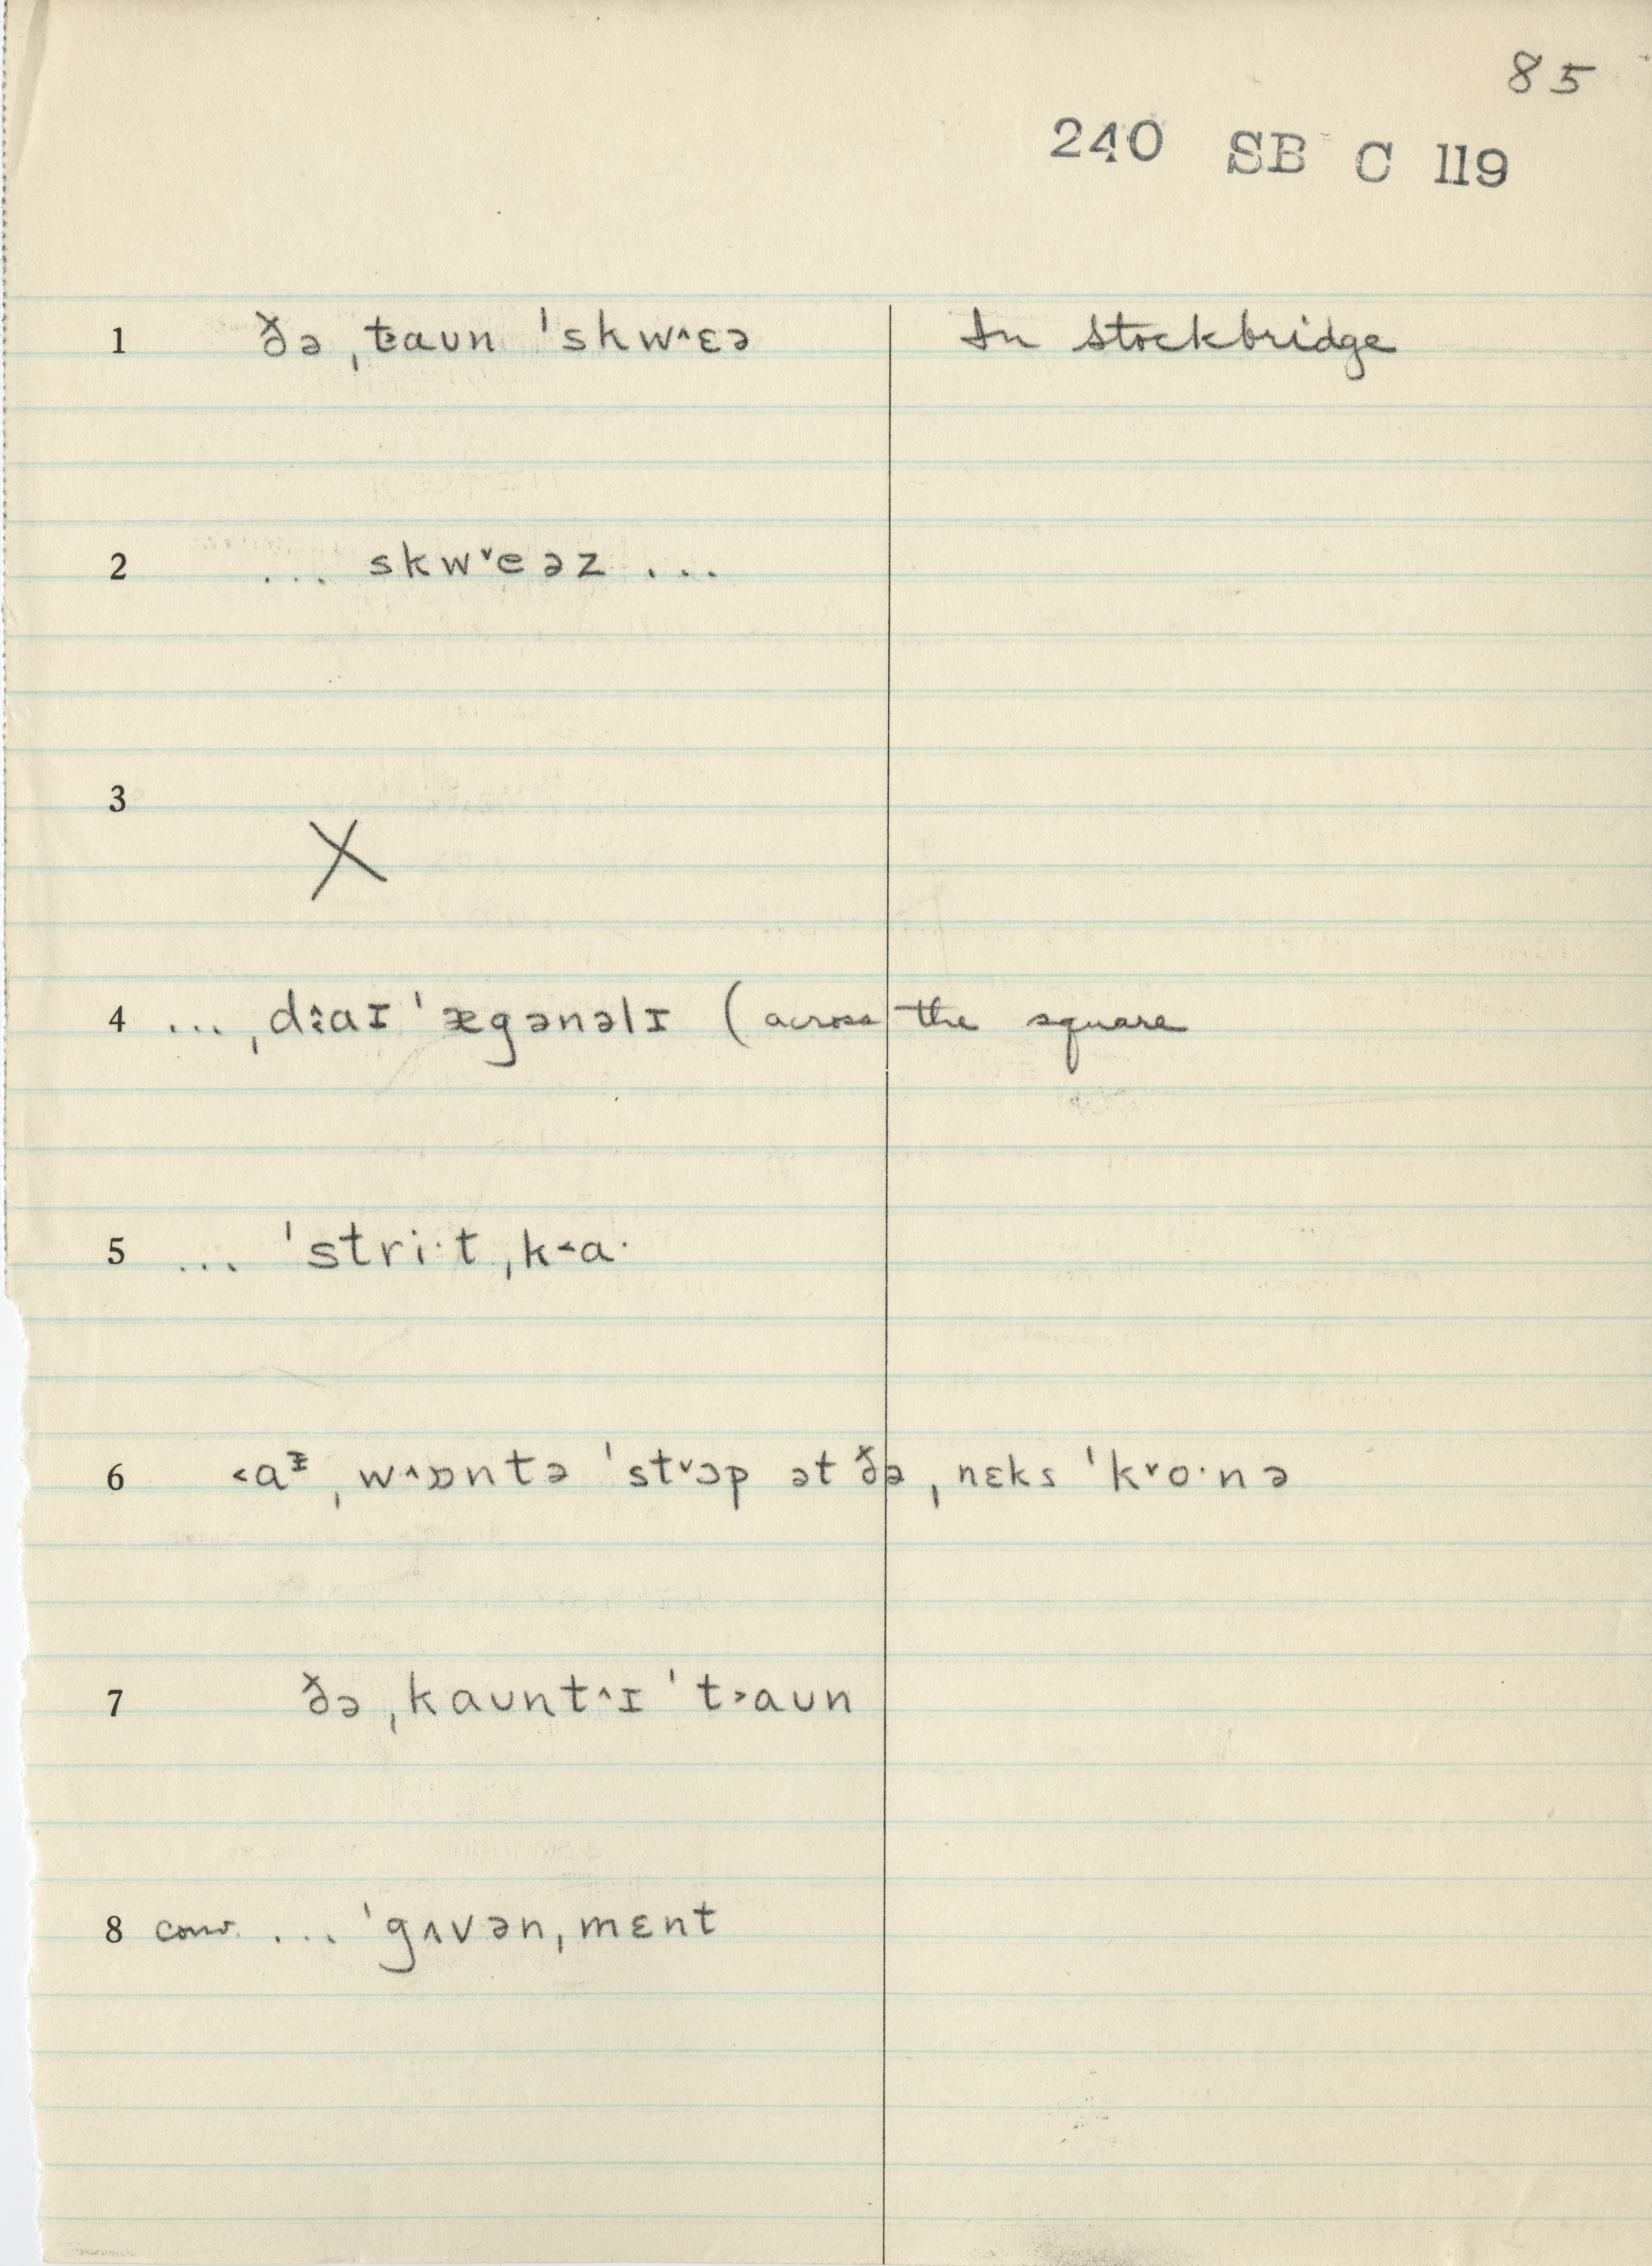 85
240 SB C 119
1 ðə ˌt˃aʊn ˈskw˄ɛə In Stockbridge
2 ... skw˅eəz ...
3 X
4 ... ˌdɑɪˈægənəlɪ (across the square
5 ... ˈstri·t ˌk˂a·
6 ˂aɪ ˌw˄ɒntə ˈst˅ɔp ət ðə ˌnɛks ˈk˅o·nə
7 ðə ˌkaʊnt˄ɪ ˈt˃aʊn
8 conv. ... ˈgʌvənˌmɛnt